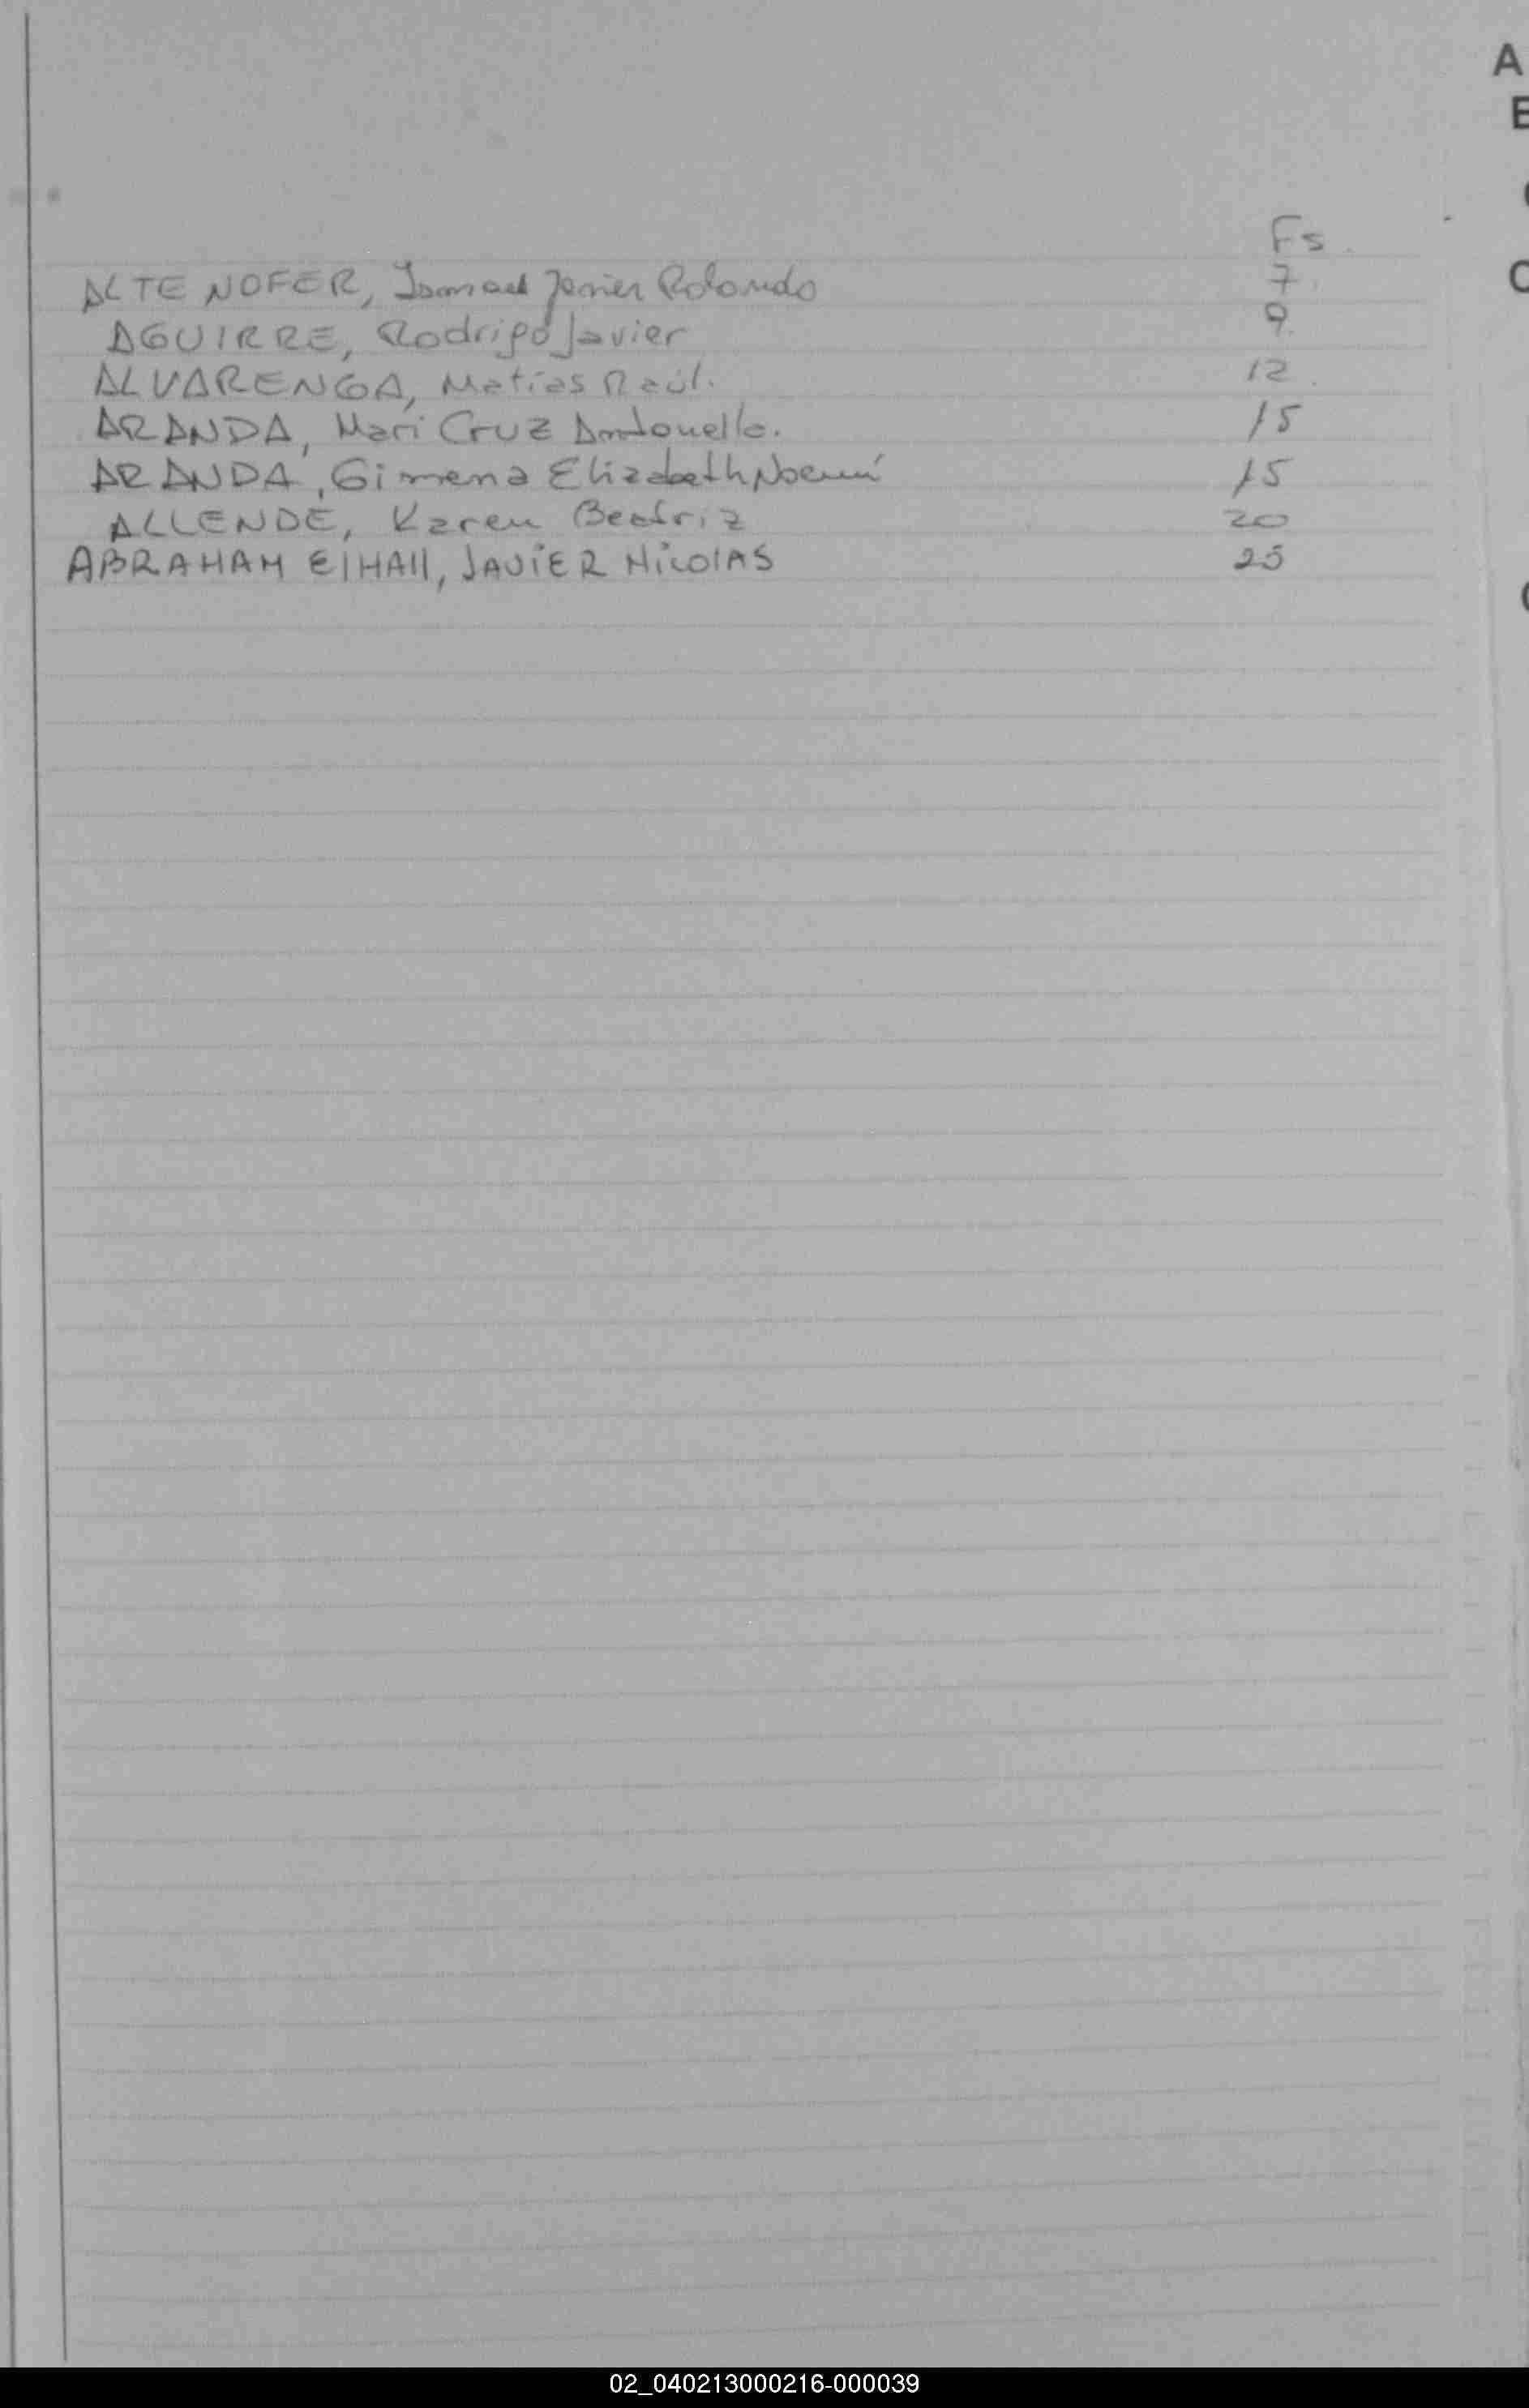 Fs
ALTENOFER, Ismael Javier Rolando 7
AGUIRRE, Rodrigo Javier 9
ALVARENGA, Matías Raúl. 12
ARANDA, Mari Cruz Antonella. 15
ARANDA, Gimena Elizabeth Noemí 15
ALLENDE, Karen Beatriz 20
ABRAHAM ElHAll, JAViER NiColAS 25
A
02_040213000216-000039